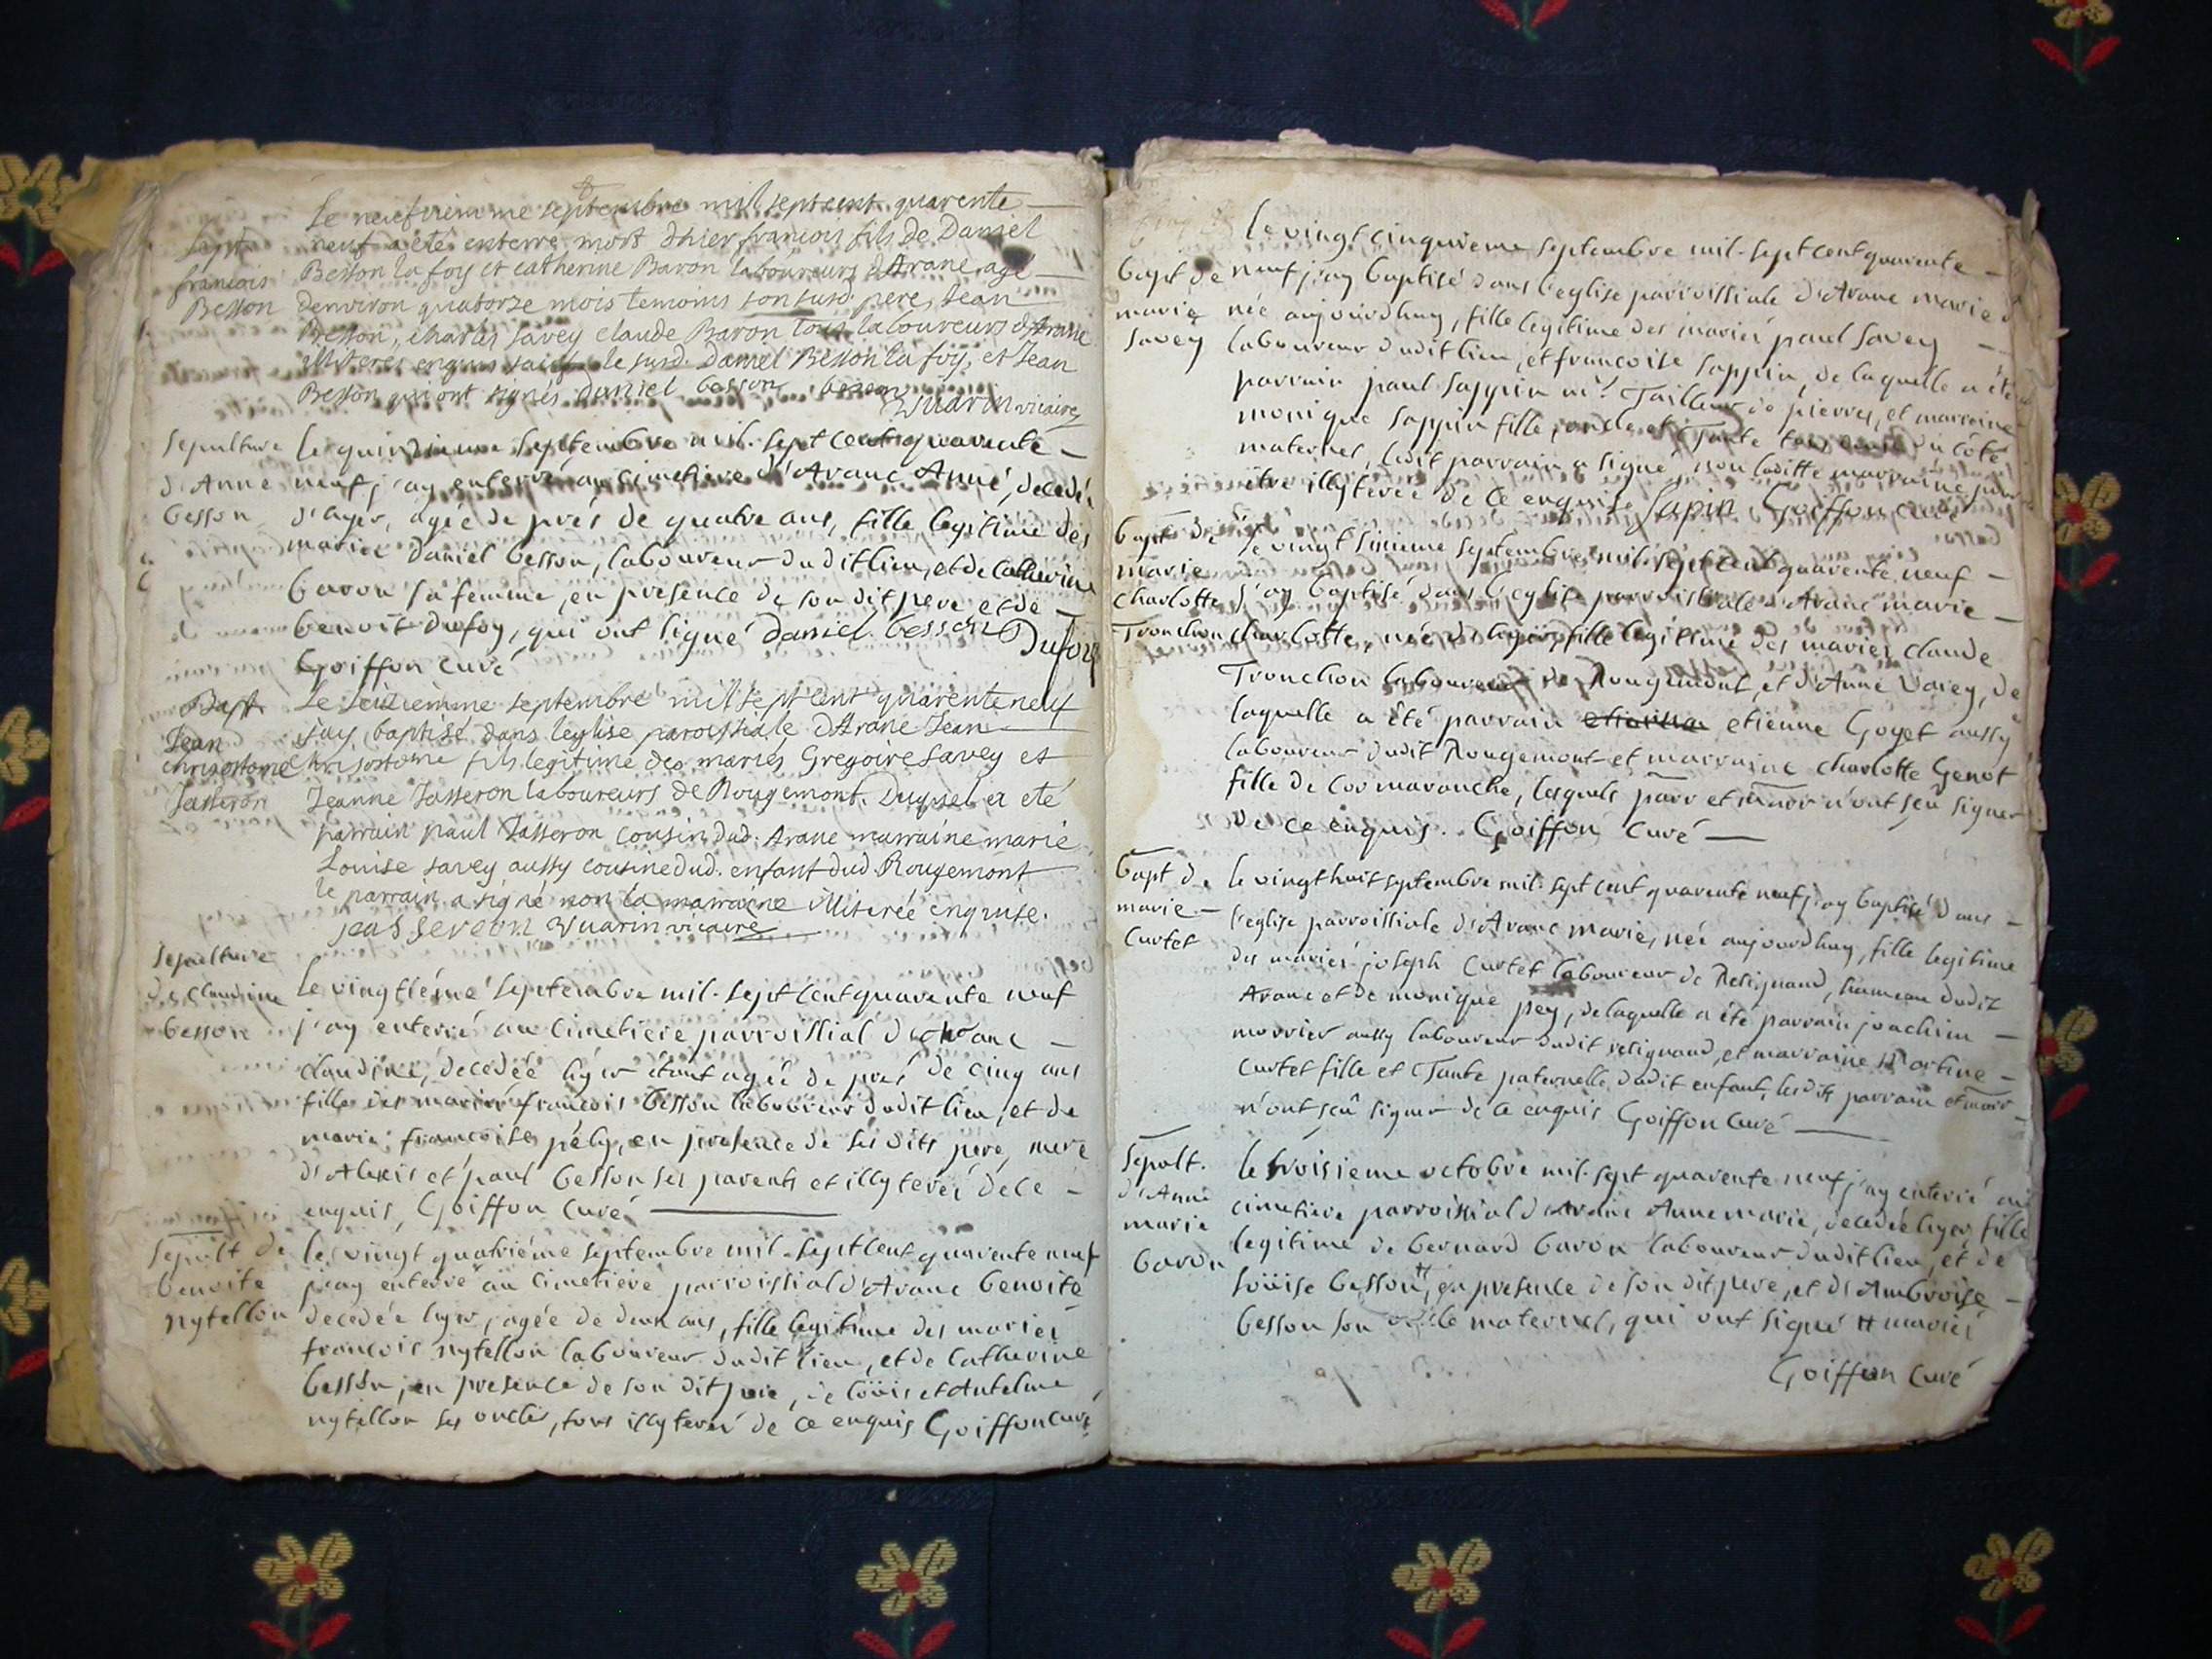 Le neufviemme septembre mil sept cent quarente
Sept neuf a été enterré mort dhier francois fils de Daniel
francois Besson la foy et catherine Baron laboureurs dArane agé
Besson denviron quatorze mois temoins son susd. pere, Jean
Besson, charles savey claude Baron tous laboureurs dArane
illiteres enquis le susd. daniel Besson la foy, et Jean
Besson qui ont signés daniel besson besson
Wuarin vicaire
Sepulture le quinzieme septembre mil. sept cent quarente
d'Anne neuf j'ay enterré au cimetiere d'Aranc Anne, decedée
besson d'hyer, agée de prés de quatre ans, fille legitime des
mariés daniel besson, laboureur dudit lieu, et de catherine
baron sa femme, en presence de son dit pere et de
benoit dufoy, qui ont signé daniel besson Dufoy
Goiffon curé
Bapt Le seiziemme septembre mil sept cent quarente neuf
Jean jay baptisé dans leglise paroissiale dArane Jean
chrisostome chrisostome fils legitime des mariés Gregoire savey et
Jasseron Jeanne Jasseron laboureurs de Rougemont. Duquel a eté
parrain paul Jasseron cousin dud. Arane marraine marie
Louise savey aussy cousine dud. enfant dud Rougemont
le parrain a signé non la marraine illiterée enquise.
jasseron Wuarin vicaire
Sepulture
de claudine le vingtiéme septembre mil. sept cent quarente neuf
besson j'ay enterré au cimetiere parroissial d'Aranc
claudine, decedée hyer étant agée de prés de cinq ans
fille des mariés francois besson laboureur dudit lieu, et de
marie francoise pély, en presence de ses dits pere, mere
d'Alexis et paul besson ses parents et illyterés de ce
enquis, Goiffon curé
Sepult de le vingt quatriéme septembre mil. sept cent quarente neuf
benoite j'ay enterré au cimetiere parroissial d'Aranc benoite
nytellon decedée hyer, agée de deux ans, fille legitime des mariés
francois nytellon laboureur dudit lieu, et de catherine
besson, en presence de son dit pere, de loüis et Antelme
nytellon ses oncles, tous illyterés de ce enquis Goiffon curé
le vingt cinquieme septembre mil. sept cent quarente
bapt de neuf j'ay baptisé dans l'eglise parroissiale d'Aranc marie
marie née aujourdhuy, fille legitime des mariés paul savey
savey laboureur dudit lieu, et francoise sappin, de laquelle a été
parrain paul sappin mt. Tailleur de pierres, et marraine
monique sappin fille, oncle et Tante du côté
maternel, ledit parrain a signé, non laditte marraine pour
être illyterée de ce enquise Sapin Goiffon curé
bapt de le vingt sixieme septembre mil. sept cent quarente neuf
marie
charlotte j'ay baptisé dans l'eglise parroissiale d'Aranc marie
Tronchon charlotte, née d'hyer, fille legitime des mariés claude
Tronchon laboureur de Rougemont, et d'Anne Varey, de
laquelle a été parrain etienne Goyet aussy
laboureur dudit Rougemont et marraine charlotte Genot
fille de cormaranche, lesquels parr et marr n'ont seû signer
de ce enquis. Goiffon curé
bapt de le vingt huit septembre mil. sept cent quarente neuf j'ay baptisé dans
marie l'eglise parroissiale d'Aranc marie, née aujourdhuy, fille legitime
curtet des mariés joseph curtet laboureur de Resignand, hameau dudit
Aranc et de monique pey, de laquelle a été parrain joachim
morrier aussy laboureur dudit resignand, et marraine Martine
curtet fille et Tante paternelle dudit enfant, lesdits parrain et marr
n'ont seû signer de ce enquis Goiffon curé
Sepult. le troisieme octobre mil. sept quarente neuf j'ay enterré au
d'Anne cimetiere parroissial d'Aranc Anne marie, decedée hyer fille
marie legitime de bernard baron laboureur dudit lieu, et de
baron loüise besson, en presence de son dit pere, et d'Ambroise
besson son oncle maternel, qui ont signé # mariés
Goiffon curé